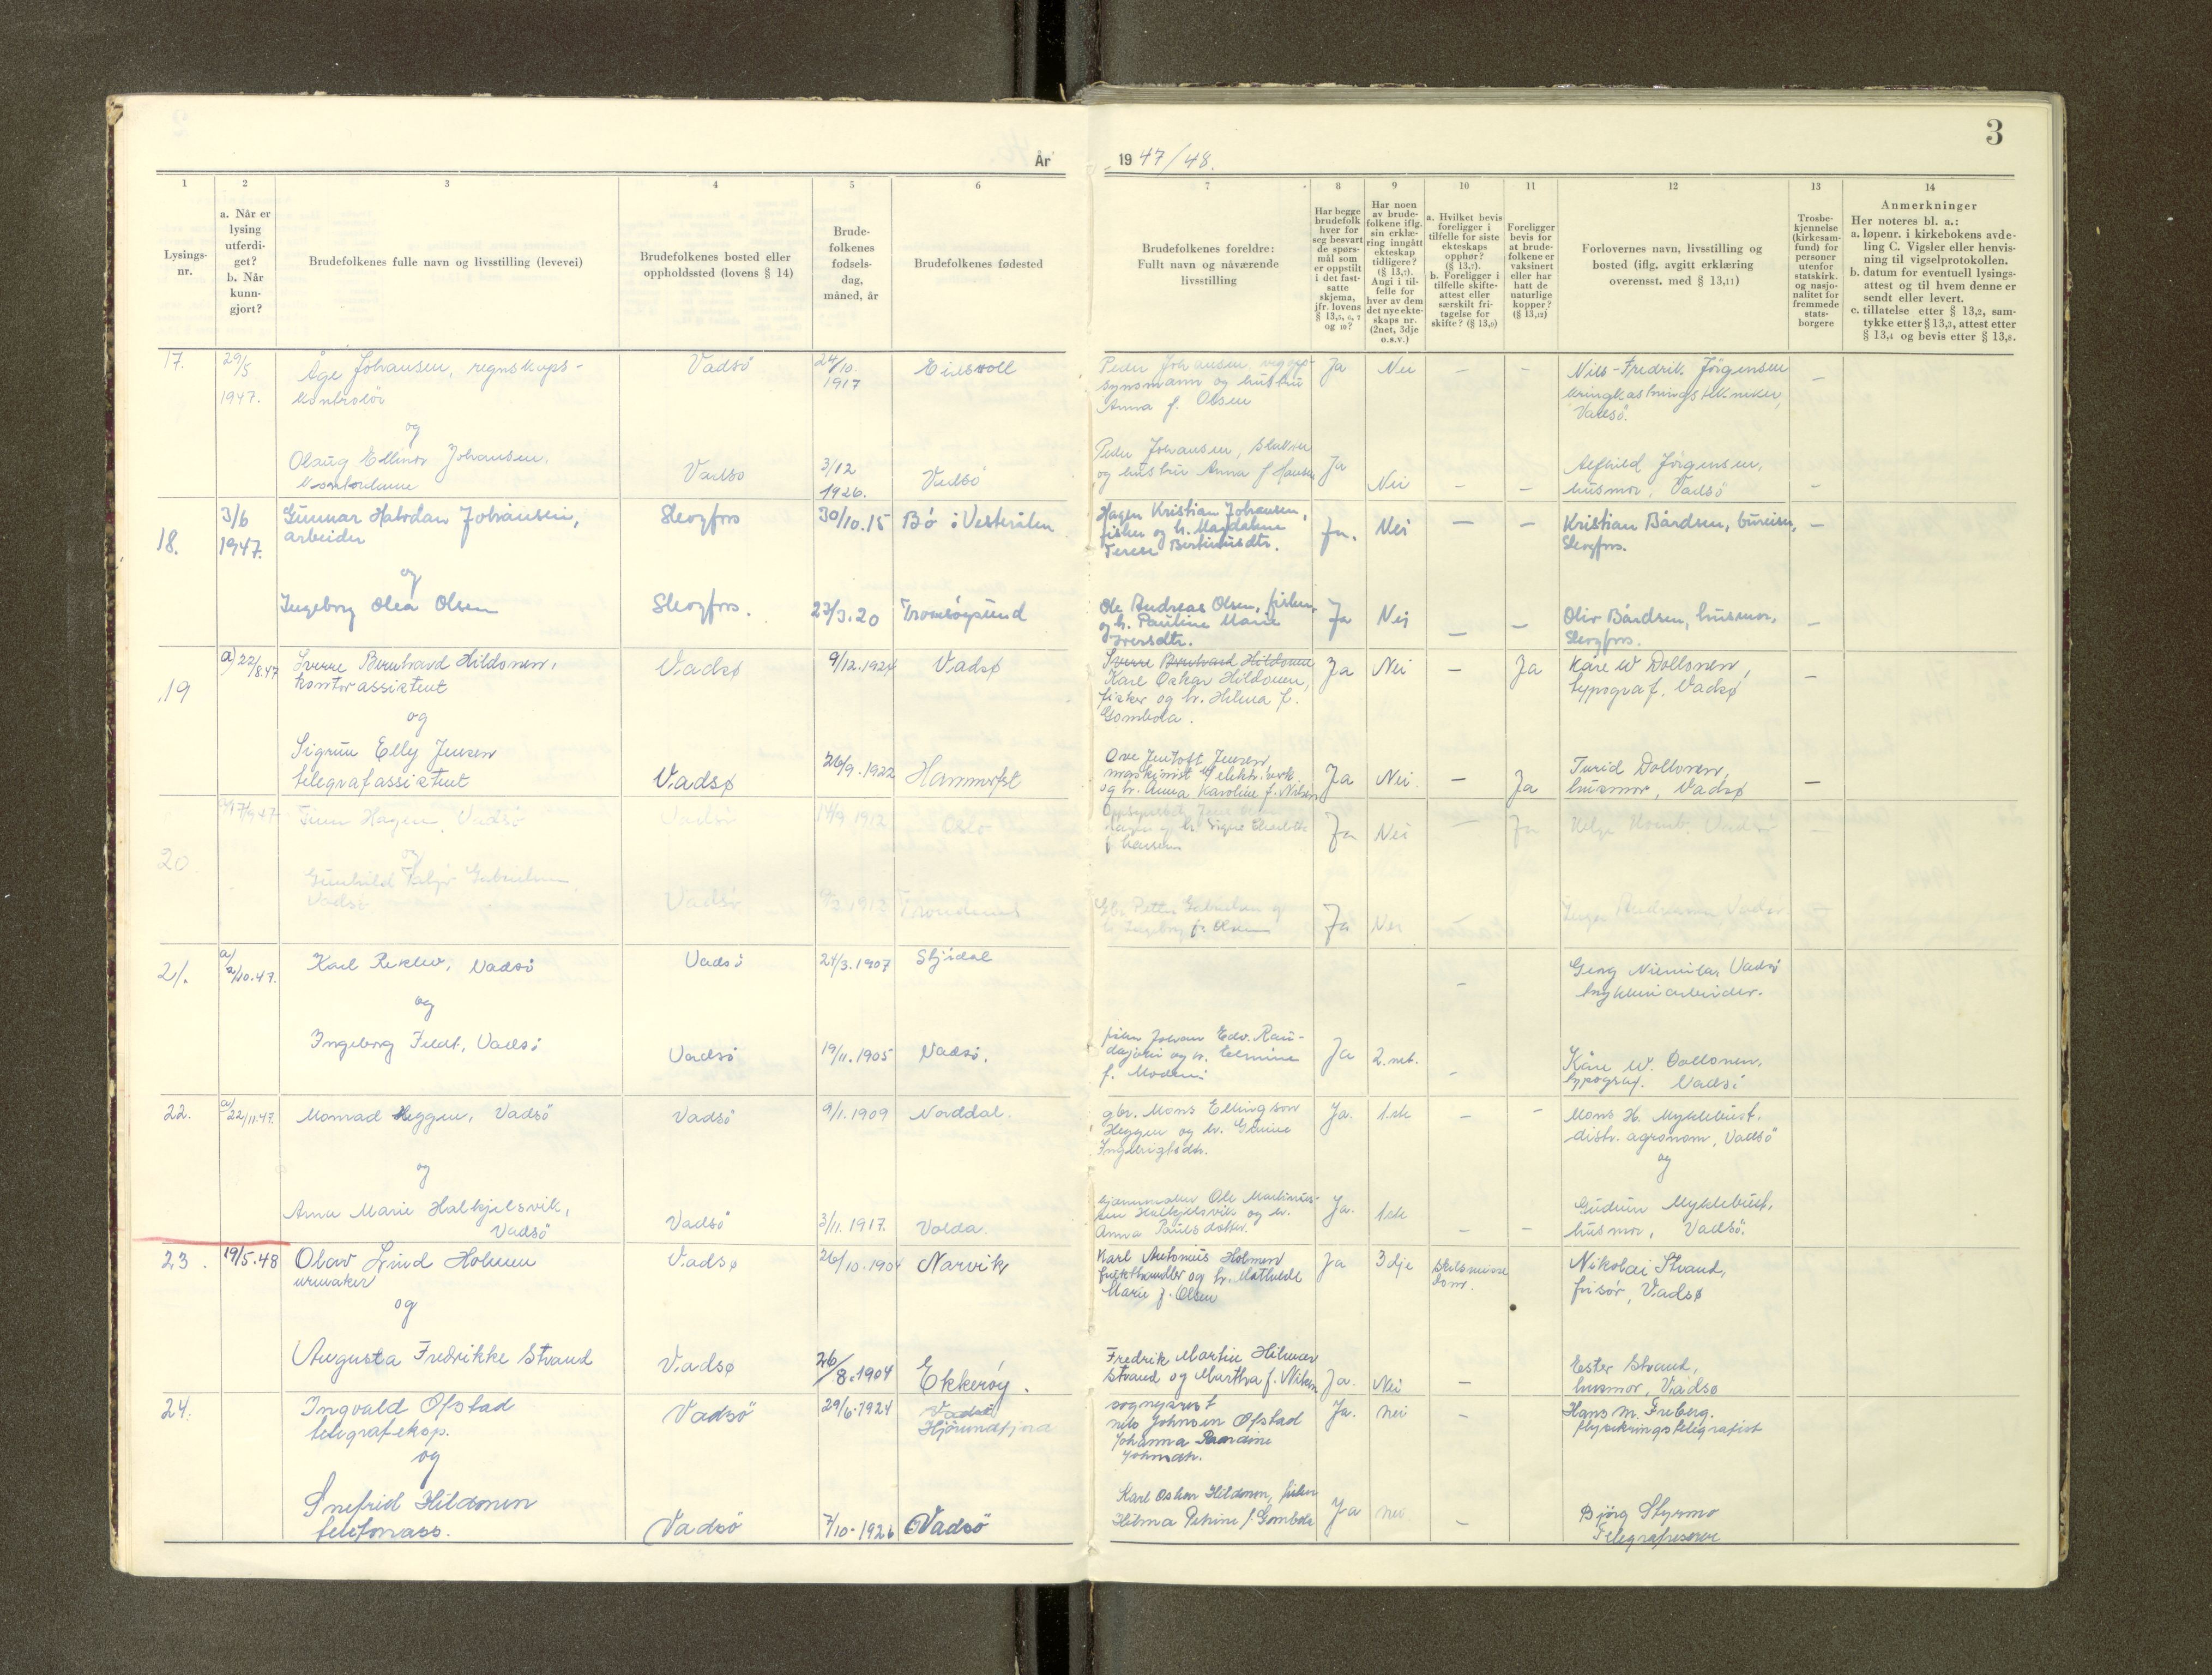 3
År 1947/48.
1 2 3 4 5 6 7 8 9 10 11 12 13 14
Lysings-
nr.
a. Når er
lysing
utferdi-
get?
b. Når
kunn-
gjort?
Brudefolkenes fulle navn og livsstilling (levevei)
Brudefolkenes bosted eller
oppholdssted (lovens § 14)
Brude-
folkenes
fødsels-
dag,
måned, år
Brudefolkenes fødested
Brudefolkenes foreldre:
Fullt navn og nåværende
livsstilling
Har begge
brudefolk
hver for
seg besvart
de spørs-
mål som
er oppstilt
i det fast-
satte
skjema,
jfr. lovens
§ 13,5, 6, 7
og 10?
Har noen
av brude-
folkene iflg.
sin erklæ-
ring inngått
ekteskap
tidligere?
(§ 13,7).
Angi i til-
felle for
hver av dem
det nye ekte-
skaps nr.
(2net, 3dje
o.s.v.)
a. Hvilket bevis
foreligger i
tilfelle for siste
ekteskaps
opphør?
(§ 13,7).
b. Foreligger i
tilfelle skifte-
attest eller
særskilt fri-
tagelse for
skifte? (§ 13,9)
Foreligger
bevis for
at brude-
folkene er
vaksinert
eller har
hatt de
naturlige
kopper?
(§ 13,12)
Forlovernes navn, livsstilling og
bosted (iflg. avgitt erklæring
overensst. med § 13,11)
Trosbe-
kjennelse
(kirkesam-
fund) for
personer
utenfor
statskirk.
og nasjo-
nalitet for
fremmede
stats-
borgere
Anmerkninger
Her noteres bl. a.:
a. løpenr. i kirkebokens avde-
ling C. Vigsler eller henvis-
ning til vigselprotokollen.
b. datum for eventuell lysings-
attest og til hvem denne er
sendt eller levert.
c. tillatelse etter § 13,2, sam-
tykke etter § 13,3, attest etter
§ 13,4 og bevis etter § 13,8.
17. 29/5 1947. Åge Johansen, regnskaps-
kontrolør
Vadsö 24/10 1917 Eidsvoll
Peder Johansen
synsmann og hustru
Anna f. Olsen
Ja Nei – –
Nils-Fredrik Jörgensen
kringkastningstekniker,
Vadsö. –
og
Olaug Ellinor Johansen,
Vadsö 3/12 1926. Vadsö
Peder Johansen,
og hustru Anna f Hansen
Ja Nei – –
Alfhild Jörgensen,
husmor, Vadsö –
18. 3/6 1947. Gunnar Halvdan Johansen,
arbeider
Skogfoss 30/10.15 Bö i Vesterålen
Hagen Kristian Johansen,
fisker og h. Magdalena
Terese Bertinusdtr.
Ja. Nei – –
Kristian Bårdsen, bureiser,
Skogfoss. –
og
Ingeborg Olea Olsen
Skogfoss. 23/3.20 Tromsöysund
Ole Andreas Olsen, fisker,
og h. Pauline Marie
Iversdtr.
Ja Nei – –
Oliv Bårdsen, husmor,
Skogfoss. –
19 a) 22/8.47 Sverre Bernhard Hildonen,
kontorassistent
Vadsø 9/12.1924 Vadsø
Sverre Bernhard Hildonen
Karl Oskar Hildonen,
fisker og h. Hilma f.
Gombola.
Ja Nei – Ja
Kåre W Dollonen,
typograf, Vadsø –
og
Sigrun Elly Jensen
telegrafassistent
Vadsø 26/9.1922 Hammerfest
Ove Jentoft Jensen
maskinist v/ elektr.verk
og h. Anna Karoline f. Nilsen
Ja Nei – Ja
Turid Dollonen,
husmor, Vadsø –
20 Finn Hagen, Vadsö
Vadsö 14/9.1912 Oslo
Ja Nei – Ja
Vadsö
og
Gunhild
Vadsö
Vadsö 1912 Trondenes
Petter Gabrielsen og
h. Ingeborg f. Olsen
Ja Nei –
Vadsö
21. a/ 2/10.47. Karl Reklev, Vadsö
Vadsö 24/3.1907 Stjördal
–
Georg Niemilä, Vadsö
bryggeriarbeider.
og
Ingeborg Feldt, Vadsö
Vadsö 19/11.1905 Vadsö.
Johan Edv. Rau-
dajoki og h.
f.
Ja 2.net. –
Kåre W. Dollonen,
typograf. Vadsö
22. a/ 22/11.47. Monrad Heggen, Vadsö
Vadsö 9/1.1909 Norddal.
gbr. Mons Ellingson
Heggen og h. Gurine
Ingebrigtsdtr.
Ja. 1.ste – –
Mons H. Myklebust,
distr. agronom, Vadsö
og
og
Anna Marie Halkjelsvik,
Vadsö
Vadsö 3/11.1917. Volda.
Ole Martinus-
sen Halkjelsvik og h.
Anna Paulsdotter.
Ja. 1.ste – –
Gudrun Myklebust,
husmor, Vadsö.
23. 19/5.48 Olav Lind Holmen
urmaker
Vadsø 26/10.1904 Narvik
Karl Antonius Holmen
frukthandler og h. Mathilde
Marie f. Olsen
Ja 3dje skilsmisse
dom.
Nikolai Strand,
frisør, Vadsø
og
Augusta Fredrikke Strand
Vadsø 26/8.1904 Ekkerøy.
Fredrik Martin Hilmar
Strand og Martha f. Nilsen
Ja. Nei –
Ester Strand,
husmor, Vadsø
24. Ingvald Ofstad
telegrafeksp.
Vadsö 29/6.1924 Vadsö
Hjörundfjord
sogneprest
Nils Johnsen Ofstad
Johanna Randine
Johnsdtr.
Ja. nei –
Hans M. Freberg.
flysikringstelegrafist
og
Snefrid Hildonen
telefonass.
Vadsö 7/10-1926 Vadsö
Karl Oskar Hildonen, fisker
Hilma Petrine f. Gombola
Ja nei –
Bjórg Styrmo